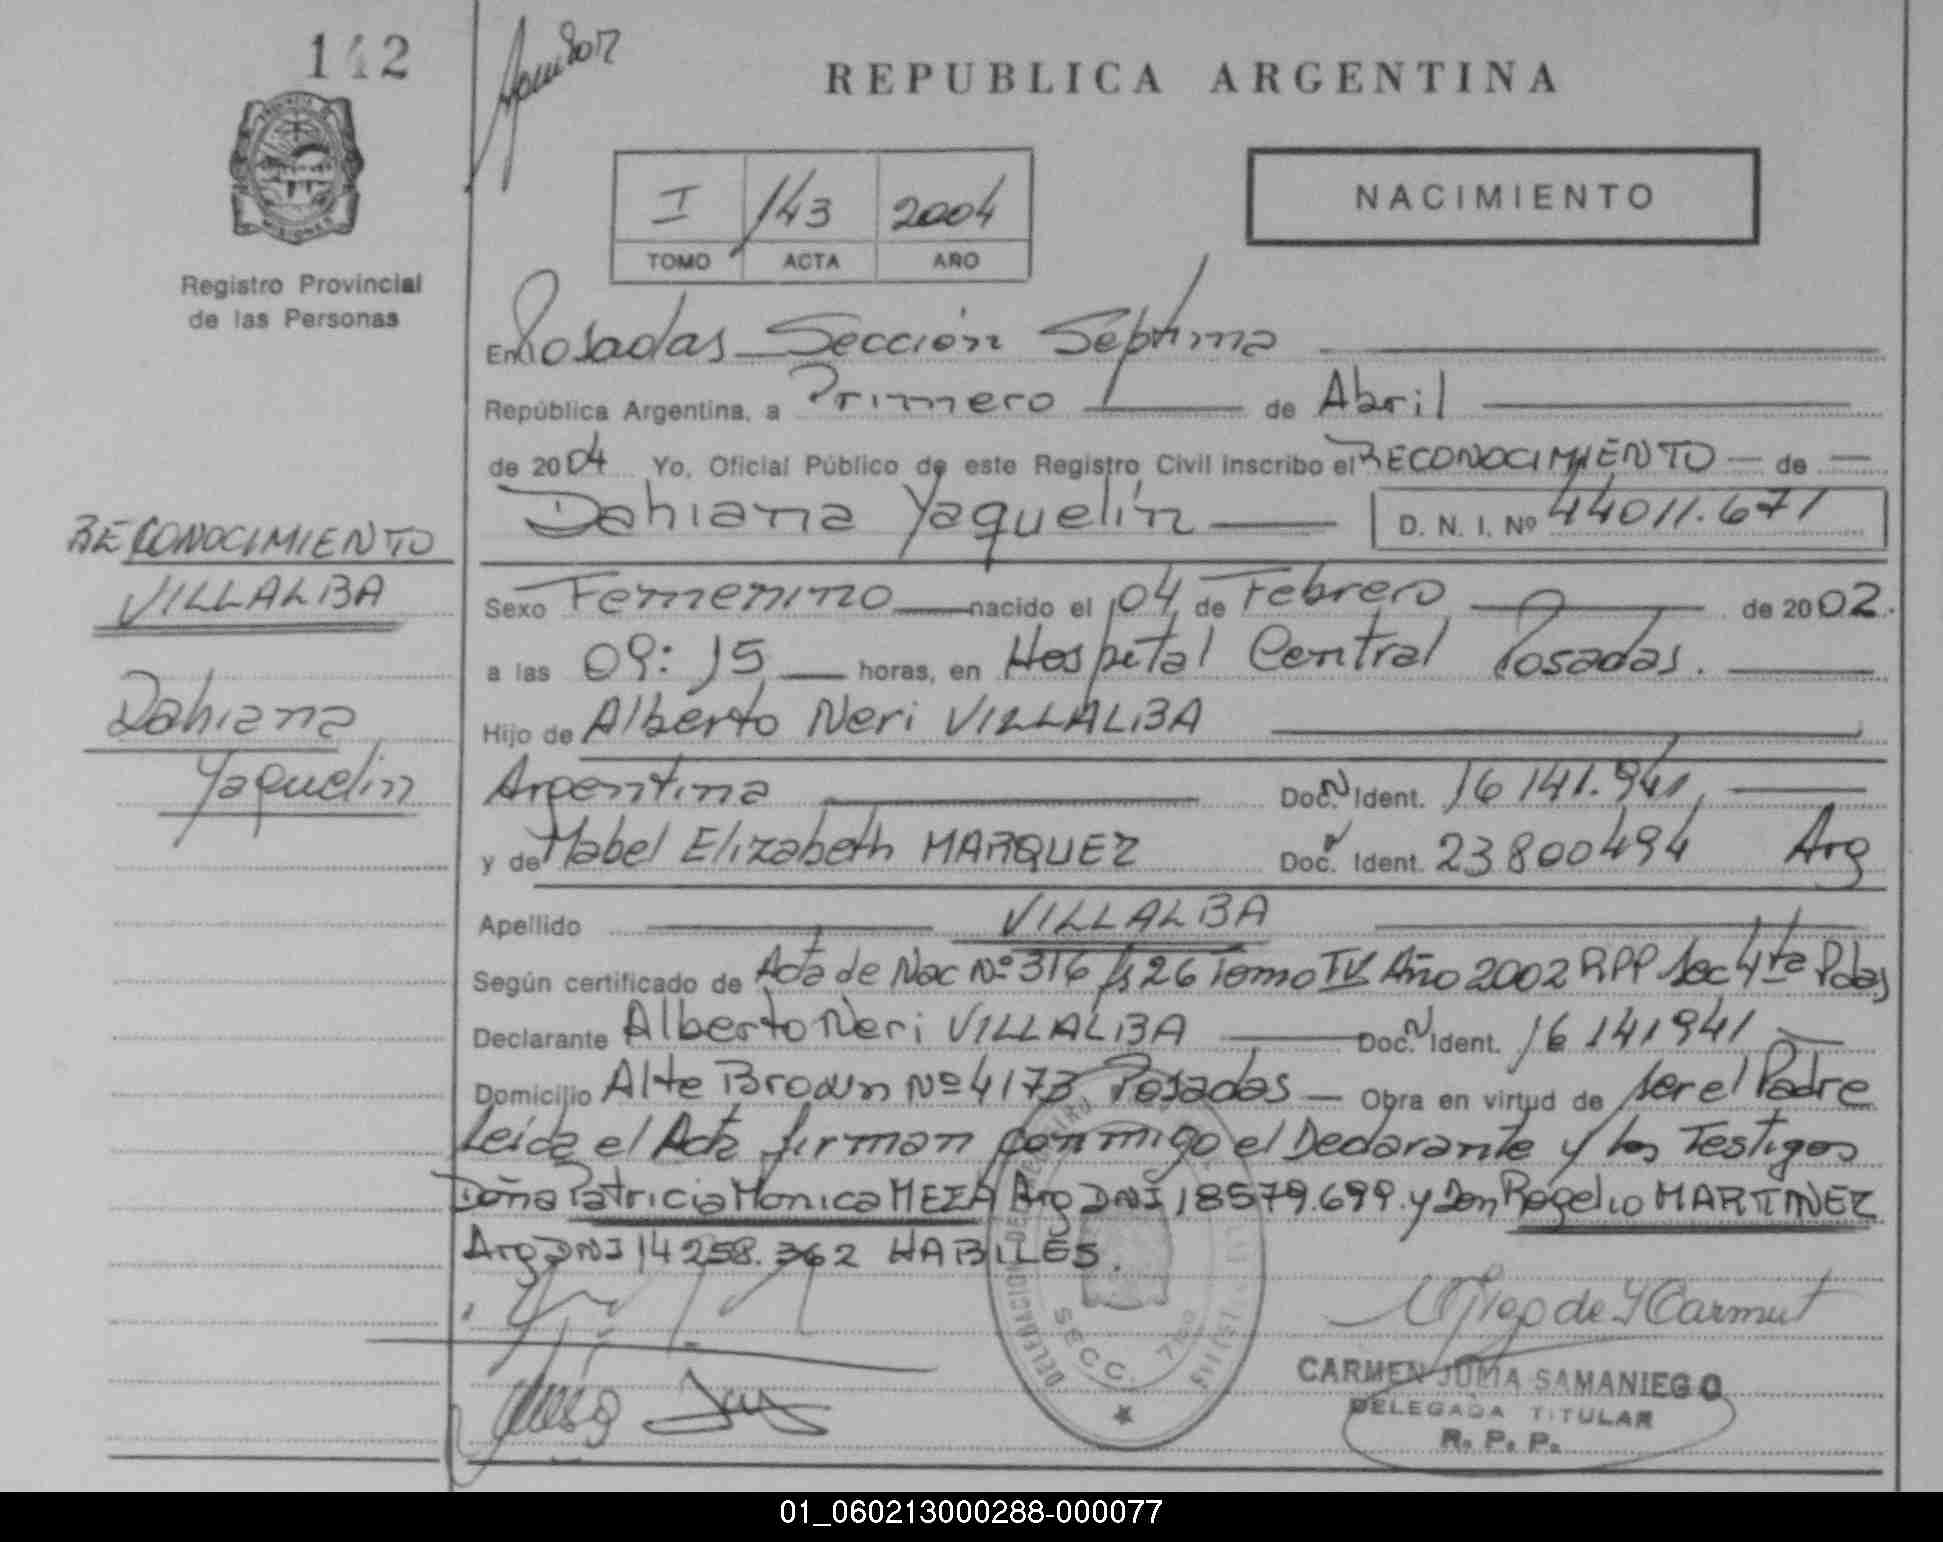 142
REPUBLICA ARGENTINA
NACIMIENTO
I 143 2004
TOMO ACTA AÑO
Registro Provincial
de las Personas
En Posadas Sección Séptima
República Argentina, a Primero de Abril
de 2004 Yo, Oficial Público de este Registro Civil inscribo el RECONOCIMIENTO de
Dahiana Yaquelín D. N. I. Nº 44011.671
RECONOCIMIENTO
VILLALBA
Dahiana
Yaquelin
Sexo Femenino nacido el 04 de Febrero de 2002.
a las 09:15 horas, en Hospital Central Posadas.
Hijo de Alberto Neri VILLALBA
Argentina Doc. N Ident. 16 141.941
y de Mabel Elizabeth MARQUEZ Doc. N Ident. 23800494 Arg
Apellido VILLALBA
Según certificado de Acta de Nac Nº 316 fs 26 Tomo IV Año 2002 RPP Sec 4ta Pdas
Declarante Alberto Neri VILLALBA Doc. N Ident. 16 141941
Domicilio Alte Brown Nº 4173 Posadas Obra en virtud de ser el Padre
Leída el Acta firman conmigo el Declarante y los Testigos
Doña Patricia Monica MEZA Arg DNI 18579.699. y Don Rogelio MARTINEZ
Arg DNI 14258.362 HABILES.
DELEGACION
SECC. 7
CARMEN JUMA SAMANIEGO
DELEGADA TITULAR
R. P. P.
01_060213000288-000077